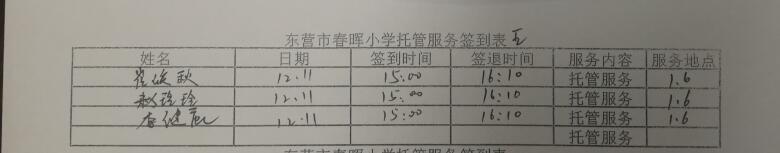 东营市春晖小学托管服务签到表 五
姓名 日期 签到时间 签退时间 服务内容 服务地点
崔 秋 12.11 15:00 16:10 托管服务 1.6
赵玲玲 12.11 15:00 16:10 托管服务 1.6
健 12.11 15:00 16:10 托管服务 1.6
托管服务
东营市春晖小学托管服务签到表